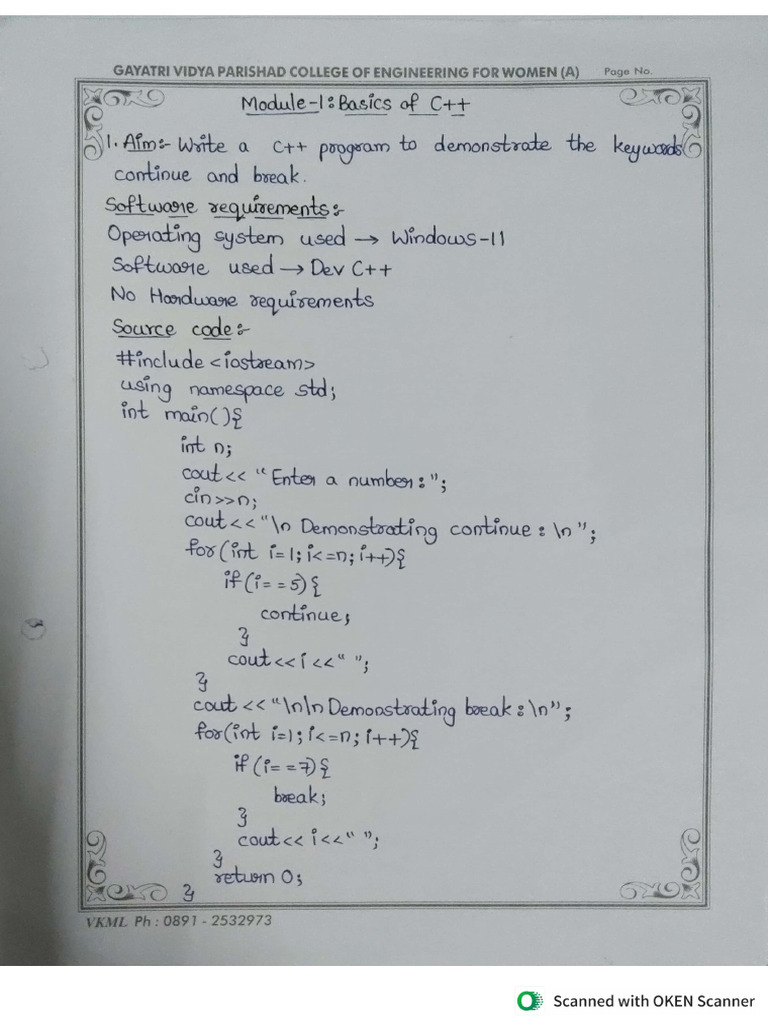 GAYATRI VIDYA PARISHAD COLLEGE OF ENGINEERING FOR WOMEN (A) Page No.
Module-1: Basics of C++
1. Aim:- Write a C++ program to demonstrate the keywords
continue and break.
Software requirements:-
Operating system used → Windows-11
Software used → Dev C++
No Hardware requirements
Source code:-
#include <iostream>
using namespace std;
int main(){
int n;
cout<< "Enter a number:";
cin>>n;
cout<<"\n Demonstrating continue: \n";
for(int i=1; i<=n; i++){
if(i==5){
continue;
}
cout<<i<<" ";
}
cout <<"\n\n Demonstrating break: \n";
for(int i=1; i<=n; i++){
if(i==7){
break;
}
cout<< i<<" ";
}
return 0;
}
VKML Ph : 0891 - 2532973
Scanned with OKEN Scanner